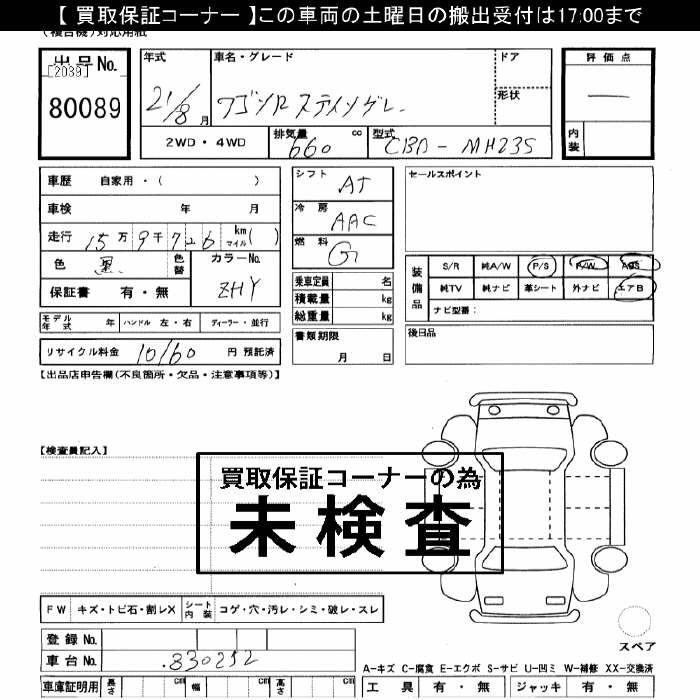 【 買取保証コーナー 】この車両の土曜日の搬出受付は17:00まで
(複合機)対応用紙
出品No.
[2039]
80089
年式 車名・グレード ドア
21/8月 ワゴンR スティングレー 形状
2WD・4WD 排気量 660 cc 型式 CBA-MH23S
評価点
—
内装
車歴 自家用・( )
車検 年 月
走行 15万9千726 km マイル( )
色 黒 色替 カラーNo. ZHY
保証書 有・無
モデル年式 年 ハンドル 左・右 ディーラー・並行
リサイクル料金 10160 円 預託済
シフト AT
冷房 AAC
燃料 G
乗車定員 名
積載量 kg
総重量 kg
書類期限
月 日
セールスポイント
装備品 S/R 純A/W P/S P/W ABS
純TV 純ナビ 革シート 外ナビ エアB
ナビ型番:
後日品
【出品店申告欄(不良箇所・欠品・注意事項等)】
【検査員記入】
買取保証コーナーの為
未検査
FW キズ・トビ石・割レX シート内装 コゲ・穴・汚レ・シミ・破レ・スレ
登録No.
車台No. .830252
車庫証明用 長さ cm 幅 cm 高さ cm
スペア
A-キズ C-腐食 E-エクボ S-サビ U-凹ミ W-補修 XX-交換済
工具 有・無 ジャッキ 有・無